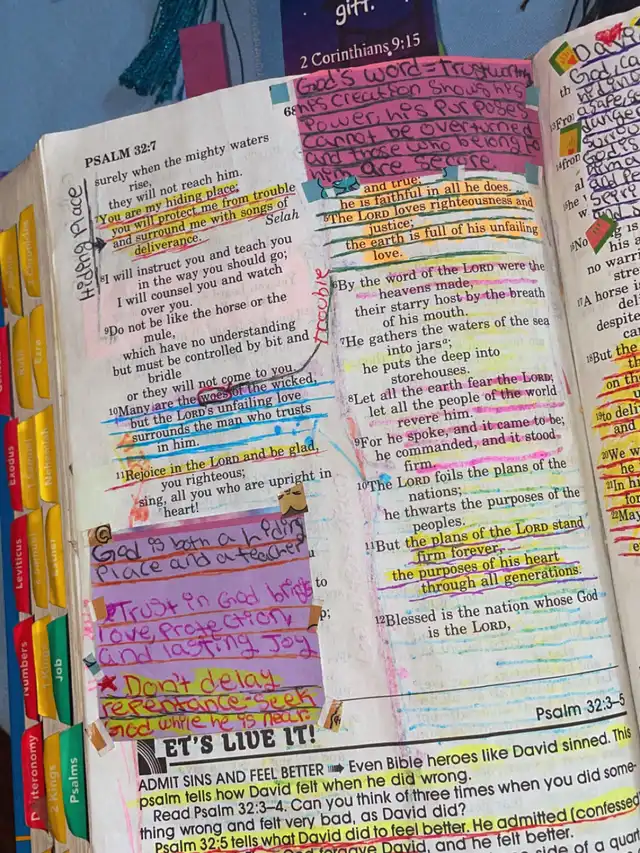 gift.
2 Corinthians 9:15
PSALM 32:7
68
surely when the mighty waters
rise,
they will not reach him.
7You are my hiding place;
you will protect me from trouble
and surround me with songs of
deliverance.
Selah
Hiding Place
8I will instruct you and teach you
in the way you should go;
I will counsel you and watch
over you.
9Do not be like the horse or the
mule,
which have no understanding
but must be controlled by bit and
bridle
or they will not come to you.
10Many are the woes of the wicked,
but the LORD's unfailing love
surrounds the man who trusts
in him.
trouble
11Rejoice in the LORD and be glad,
you righteous;
sing, all you who are upright in
heart!
God is both a hiding
Place and a teacher
Trust in God brings
love, protection
and lasting Joy
Don't delay
repentance-seek
God while he is near
to
God's word=trustworthy
his creation shows his
Power, his Purposes
cannot be overturned
and those who belong to
him are secure.
and true;
he is faithful in all he does.
5The LORD loves righteousness and
justice;
the earth is full of his unfailing
love.
6By the word of the LORD were the
heavens made,
their starry host by the breath
of his mouth.
7He gathers the waters of the sea
into jars a;
he puts the deep into
storehouses.
8Let all the earth fear the LORD;
let all the people of the world
revere him.
9For he spoke, and it came to be;
he commanded, and it stood
firm.
10The LORD foils the plans of the
nations;
he thwarts the purposes of the
peoples.
11But the plans of the LORD stand
firm forever,
the purposes of his heart
through all generations.
12Blessed is the nation whose God
is the LORD,
Psalm 32:3-5
LET'S LIVE IT!
ADMIT SINS AND FEEL BETTER Even Bible heroes like David sinned. This
psalm tells how David felt when he did wrong.
Read Psalm 32:3-4. Can you think of three times when you did some-
thing wrong and felt very bad, as David did?
Psalm 32:5 tells what David did to feel better. He admitted (confessed
God forgave David, and he felt better.
side of a quar
Exodus
Leviticus
Numbers
Deuteronomy
Ruth
Ezra
Nehemiah
Esther
Job
2 Kings
Psalms
no warri
A horse i
deli
despite
18But the
on th
19to deli
and
20We w
he i
21In hi
22May